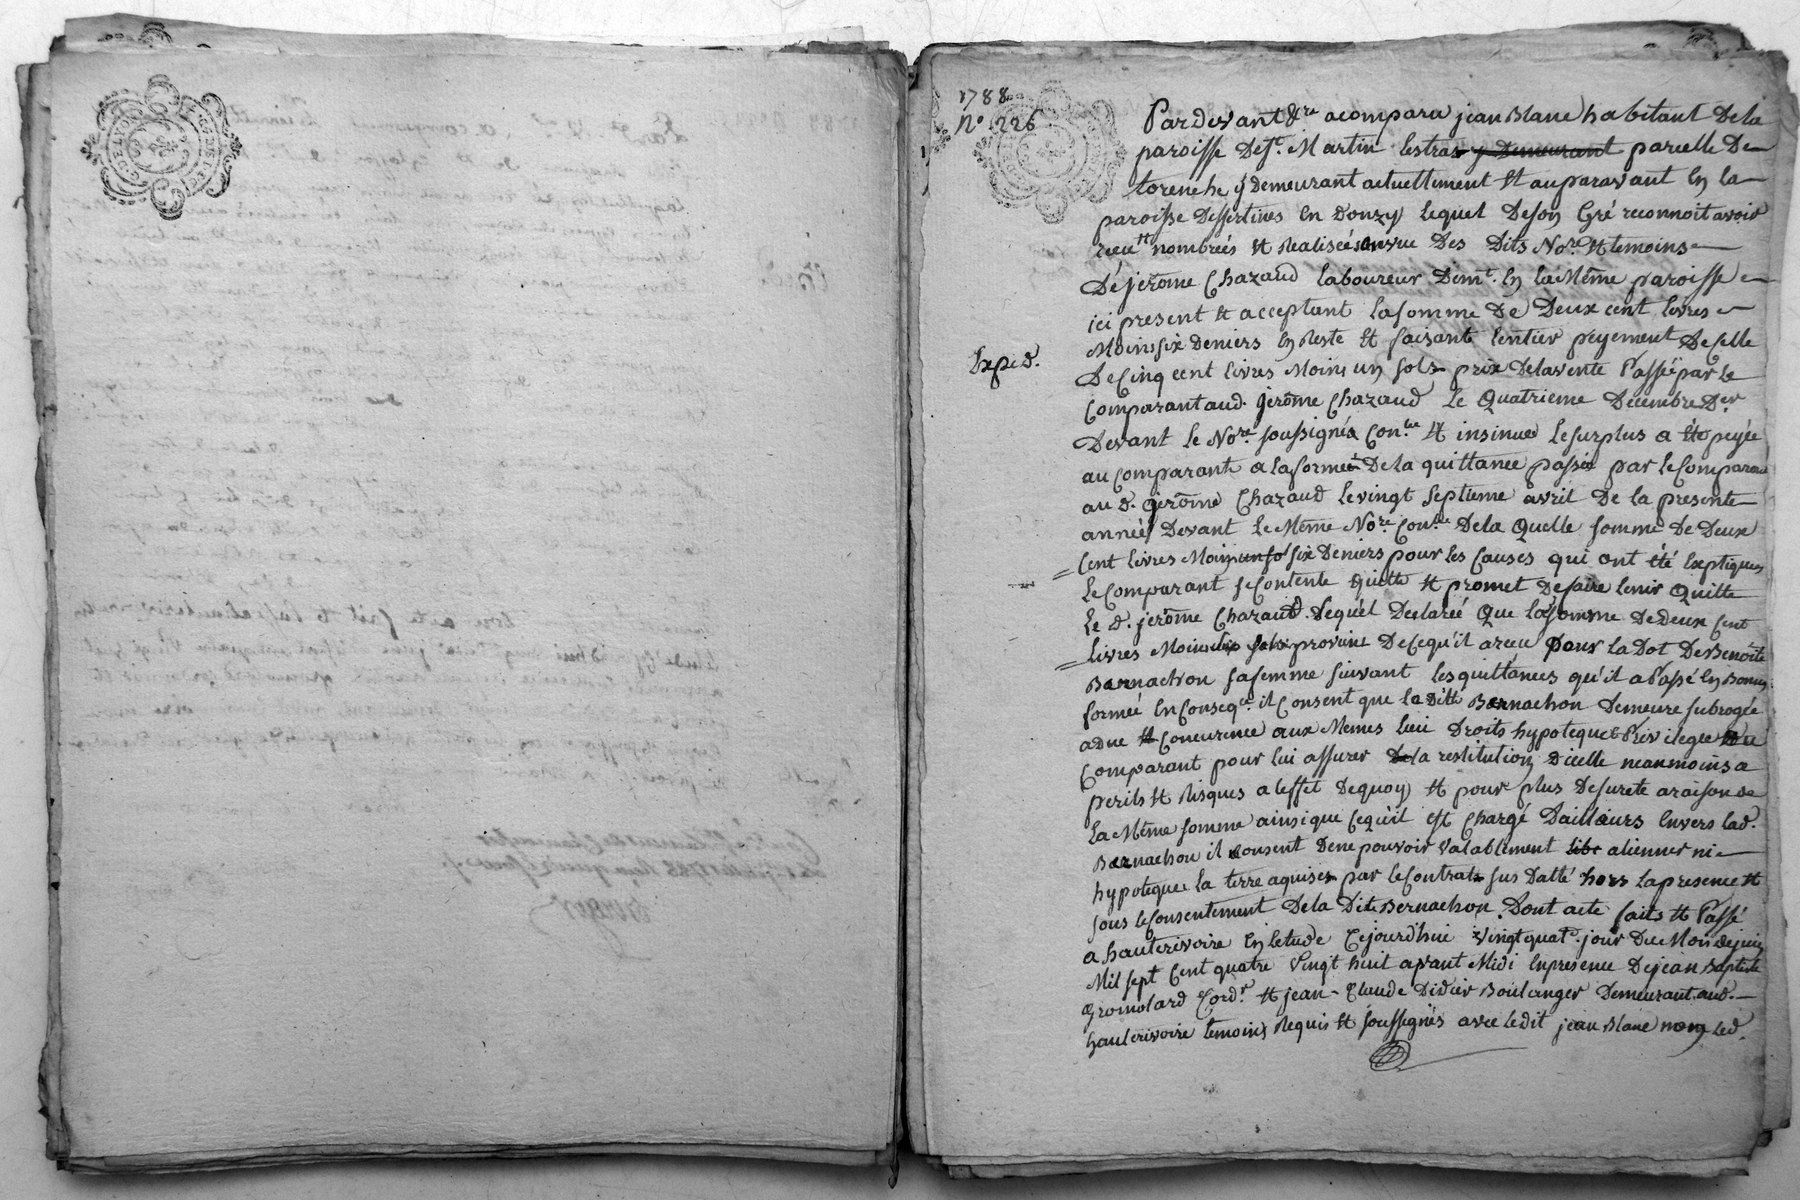 1788
N.° 226
Exped.
Par devant &.re a comparu jean Blanc habitant De la
paroisse De S.t Martin lestras y Demeurant parcelle De
torenche y demeurant actuellement et auparavant En la
paroisse Dessertines En Donzy lequel De son Gré reconnoit avoir
reçu nombrées et Realisées en vue Des Dits No.re et temoins
De jerôme Chazaud laboureur Dem.t En la Même paroisse
ici present et acceptant la somme De Deux cent livres
Moins six Deniers En Reste et faisant lentier peyement De Celle
De Cinq cent livres Moins un sols prix De la vente Passée par Le
Comparant aud. jerôme Chazaud Le Quatrieme Decembre D.er
Devant le No.re soussigné Con.lée et insinuée Le surplus a été peyée
au comparant a la forme De la quittance passée par le Comparant
au d. jerôme Chazaud le vingt septieme avril De la presente
année Devant le Même No.re Con.lée De la Quelle somme De Deux
Cent livres Moins six Deniers pour les Causes qui ont été Expliquées
le Comparant se Contente quitte et promet De faire tenir Quitte
Le d. jerôme Chazaud. Lequel Declaré Que la somme De Deux Cent
livres Moins provient De ce qu'il a reçu pour la Dot De Benoite
Bernachon sa femme suivant les quittances qu'il a Passé En Bonnes
formée En Conseq.ce il Consent que la Ditte Bernachon Demeure subrogée
a Due et Concurence aux Memes lieu Droits hypoteque & Privilegee Du
Comparant pour lui assurer la restitution Dicelle neanmoins a
perils et Risques a leffet De quoy et pour plus De sureté a raison De
la Même somme ainsi que Ce qu'il est Chargé Dailleurs Envers lad.
Bernachon il consent De ne pouvoir valablement alienner ni
hypotequer la terre aquises par le Contrat sus Datté hors la presence et
sous le Consentement De la Dite Bernachon. Dont acte faits et Passé
a hauterivoire En letude Cejourd'hui vingt quat.e jour Du Mois de juin
Mil sept Cent quatre Vingt huit avant Midi En presence De jean Baptiste
Gromolard Cord.r et jean-Claude Didier Boulanger Demeurant aud.
hauterivoire temoins Requis et soussignés avec ledit jean Blanc non led.